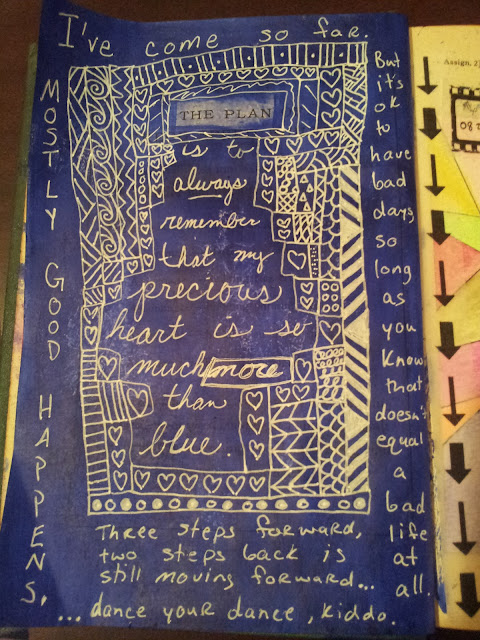 I've come so far.
MOSTLY GOOD HAPPENS,
But
it's
ok
to
have
bad
days
so
long
as
you
know
that
doesn't
equal
a
bad
life
at
all.
THE PLAN
is to
always
remember
that my
precious
heart is so
much more
than
blue.
Three steps forward,
two steps back is
still moving forward...
...dance your dance, kiddo.
Assign. 2